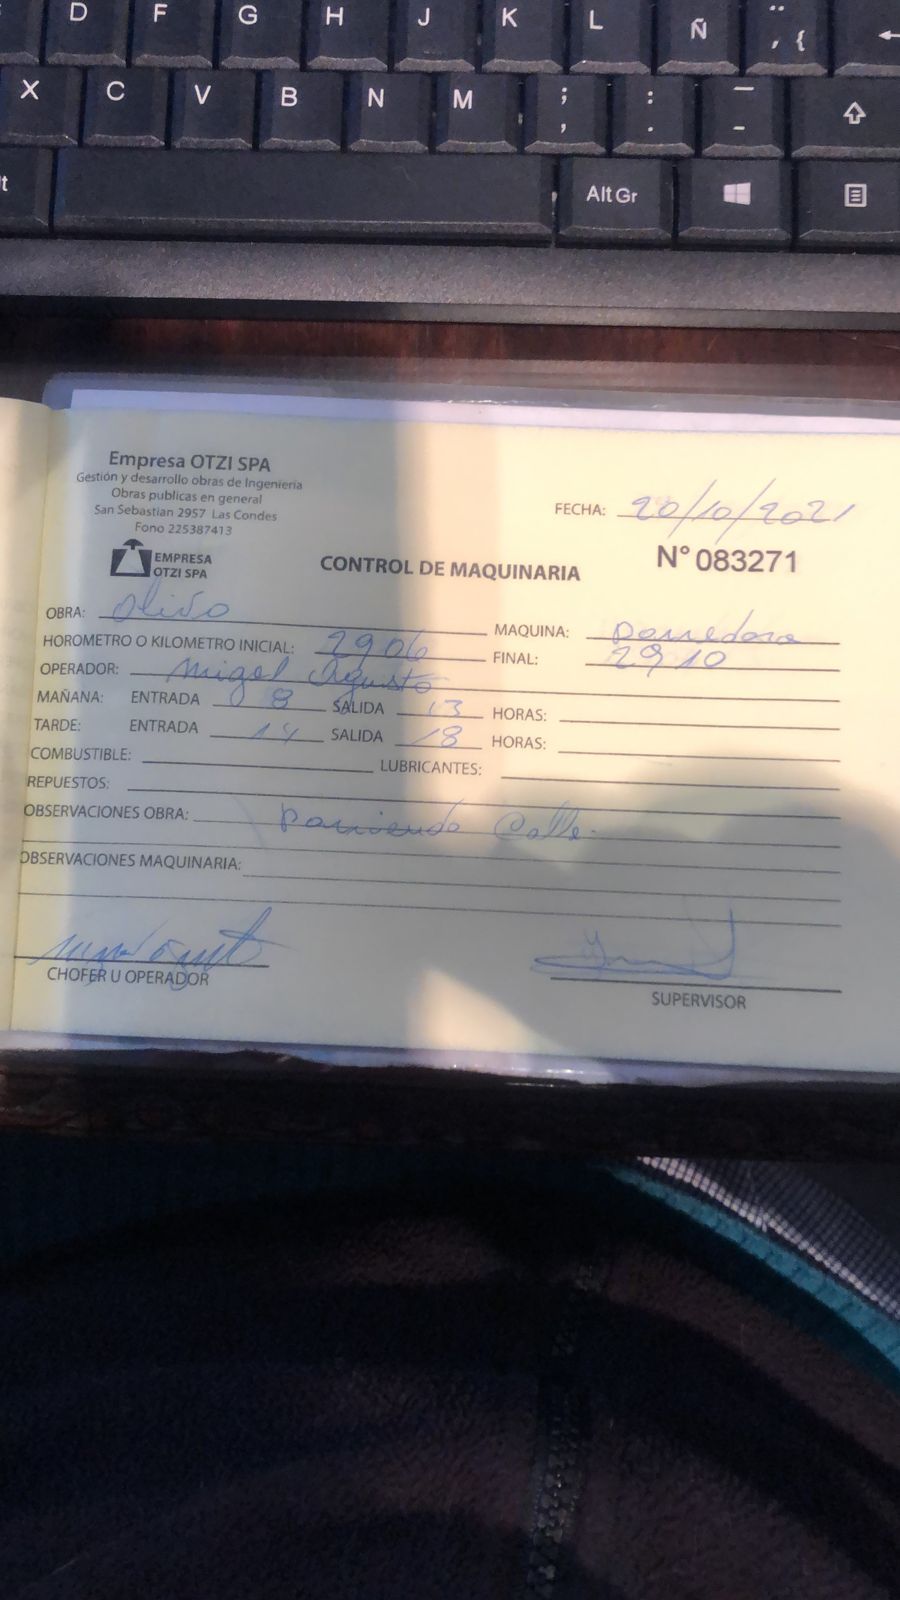 D F G H J K L Ñ ¨ ´ { ←
X C V B N M ; , : . _ -
Alt Gr
Empresa OTZI SPA
Gestión y desarrollo obras de Ingenieria
Obras publicas en general
San Sebastian 2957 Las Condes
Fono 225387413
EMPRESA
OTZI SPA
FECHA: 20/10/2021
CONTROL DE MAQUINARIA
N° 083271
OBRA: Olivo
MAQUINA: Barredora
HOROMETRO O KILOMETRO INICIAL: 2906
FINAL: 2910
OPERADOR: Migel Agusto
MAÑANA: ENTRADA 8 SALIDA 13 HORAS:
TARDE: ENTRADA 14 SALIDA 18 HORAS:
COMBUSTIBLE: LUBRICANTES:
REPUESTOS:
OBSERVACIONES OBRA: Barriendo Calle.
OBSERVACIONES MAQUINARIA:
CHOFER U OPERADOR
SUPERVISOR